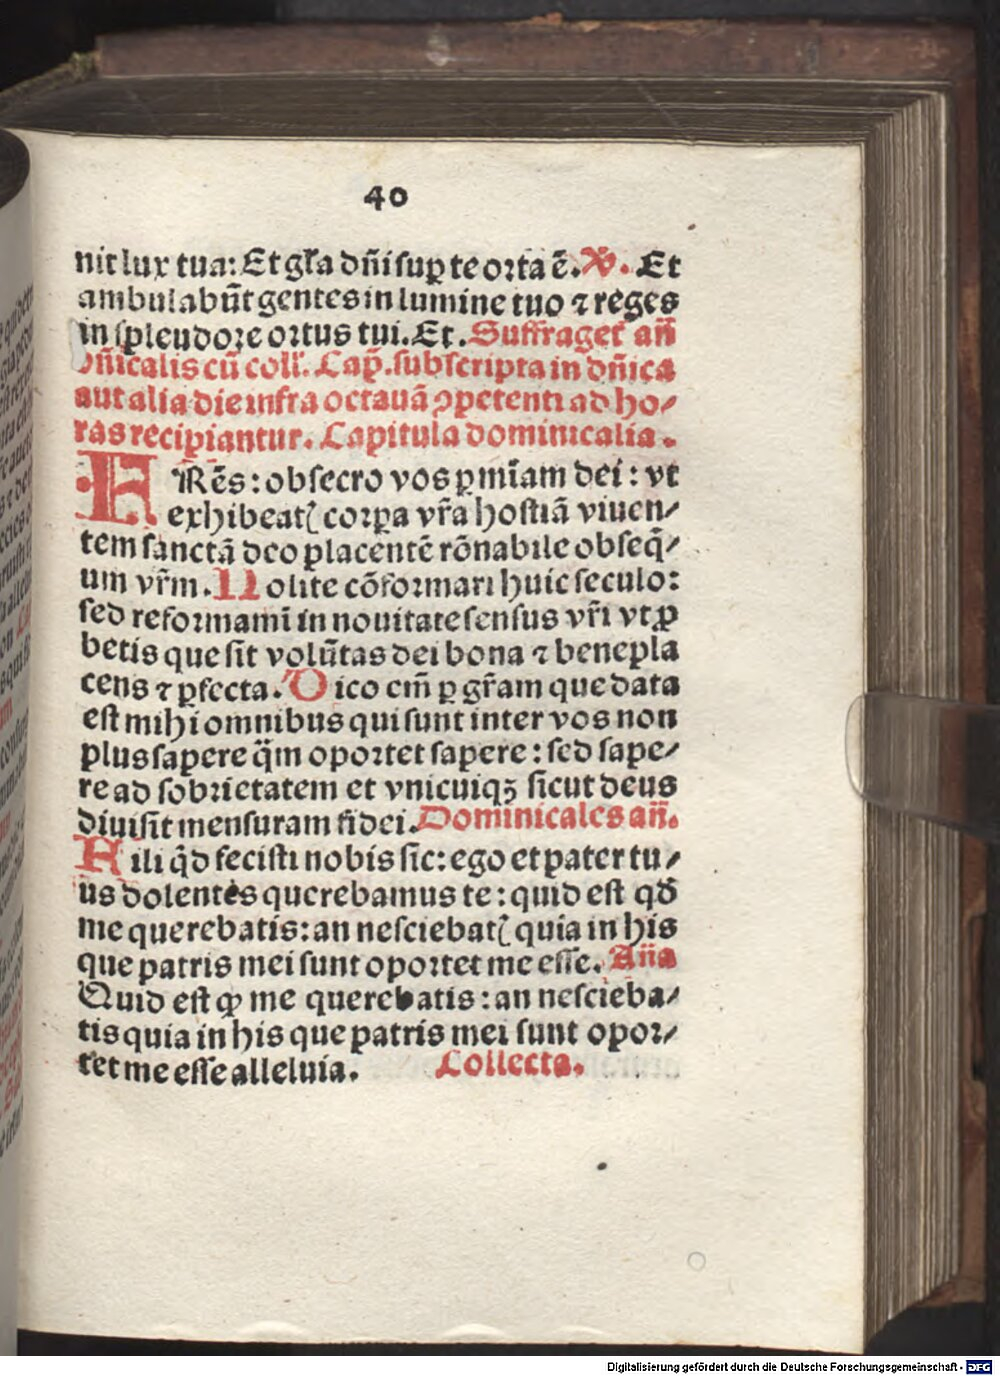 40
nit lux tua: Et gl̄a dn̄i suꝑ te orta ē. ℣. Et
ambulabūt gentes in lumine tuo ⁊ reges
in spleudore ortus tui. Et. Suffraget᷑ an̄
dn̄icalis cū coll᷑. Cap̄. subscripta in dn̄ica
aut alia die infra octauā ꝯpetenti ad ho-
ras recipiantur. Capitula dominicalia.
FRēs: obsecro vos ꝑ mīam dei: vt
exhibeatꝭ corꝑa vr̄a hostiā viuen-
tem sanctā deo placentē rōnabile obseq̄-
um vr̄m. Nolite cōformari huic seculo:
sed reformamī in nouitate sensus vr̄i vt ꝓ
betis que sit volūtas dei bona ⁊ benepla
cens ⁊ ꝑfecta. Dico em̄ ꝑ gr̄am que data
est mihi omnibus qui sunt inter vos non
plus sapere q̄m oportet sapere: sed sape-
re ad sobrietatem et vnicuiqꝫ sicut deus
diuisit mensuram fidei. Dominicales an̄.
Fili q̄d fecisti nobis sic: ego et pater tu-
us dolentes querebamus te: quid est qd̄
me querebatis: an nesciebatꝭ quia in his
que patris mei sunt oportet me esse. An̄a
Quid est ꝙ me querebatis: an nescieba-
tis quia in his que patris mei sunt opor-
tet me esse alleluia. Collecta.
Digitalisierung gefördert durch die Deutsche Forschungsgemeinschaft - DFG